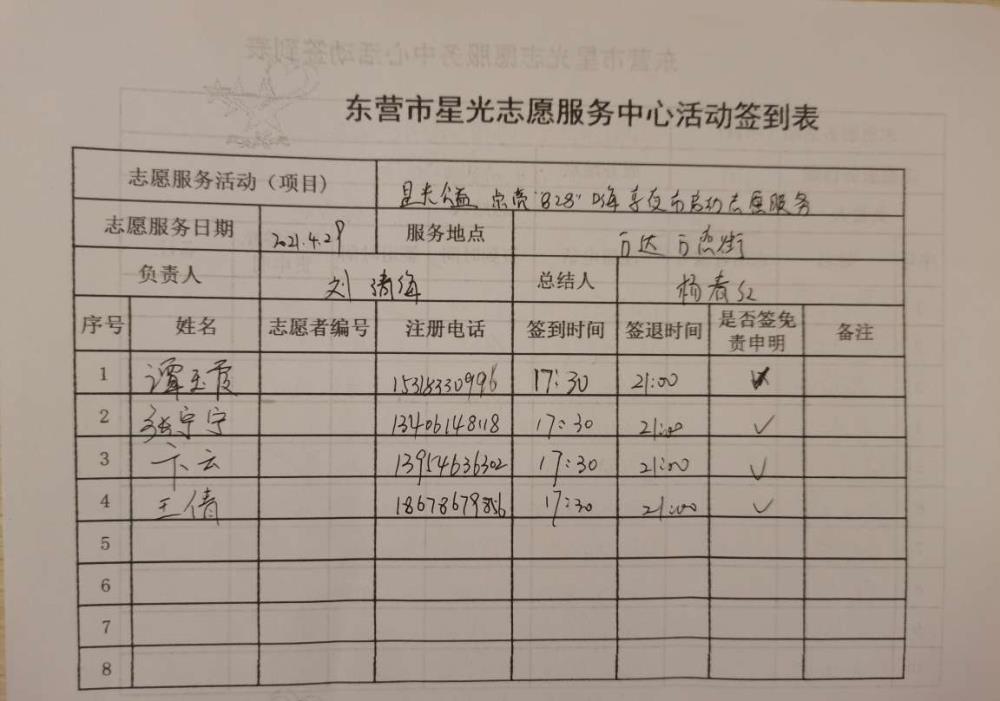 东营市星光志愿服务中心活动签到表
志愿服务活动（项目） 星光公益 点亮"828" 嗨享夜市启动志愿服务
志愿服务日期 2021.4.29 服务地点 万达 万杰街
负责人 刘清海 总结人 杨春红
序号 姓名 志愿者编号 注册电话 签到时间 签退时间 是否签免责申明 备注
1 谭玉霞 15315330996 17:30 21:00 ✓
2 张宁宁 13406148118 17:30 21:00 ✓
3 卞云 13954636302 17:30 21:00 ✓
4 王倩 18678679856 17:30 21:00 ✓
5
6
7
8